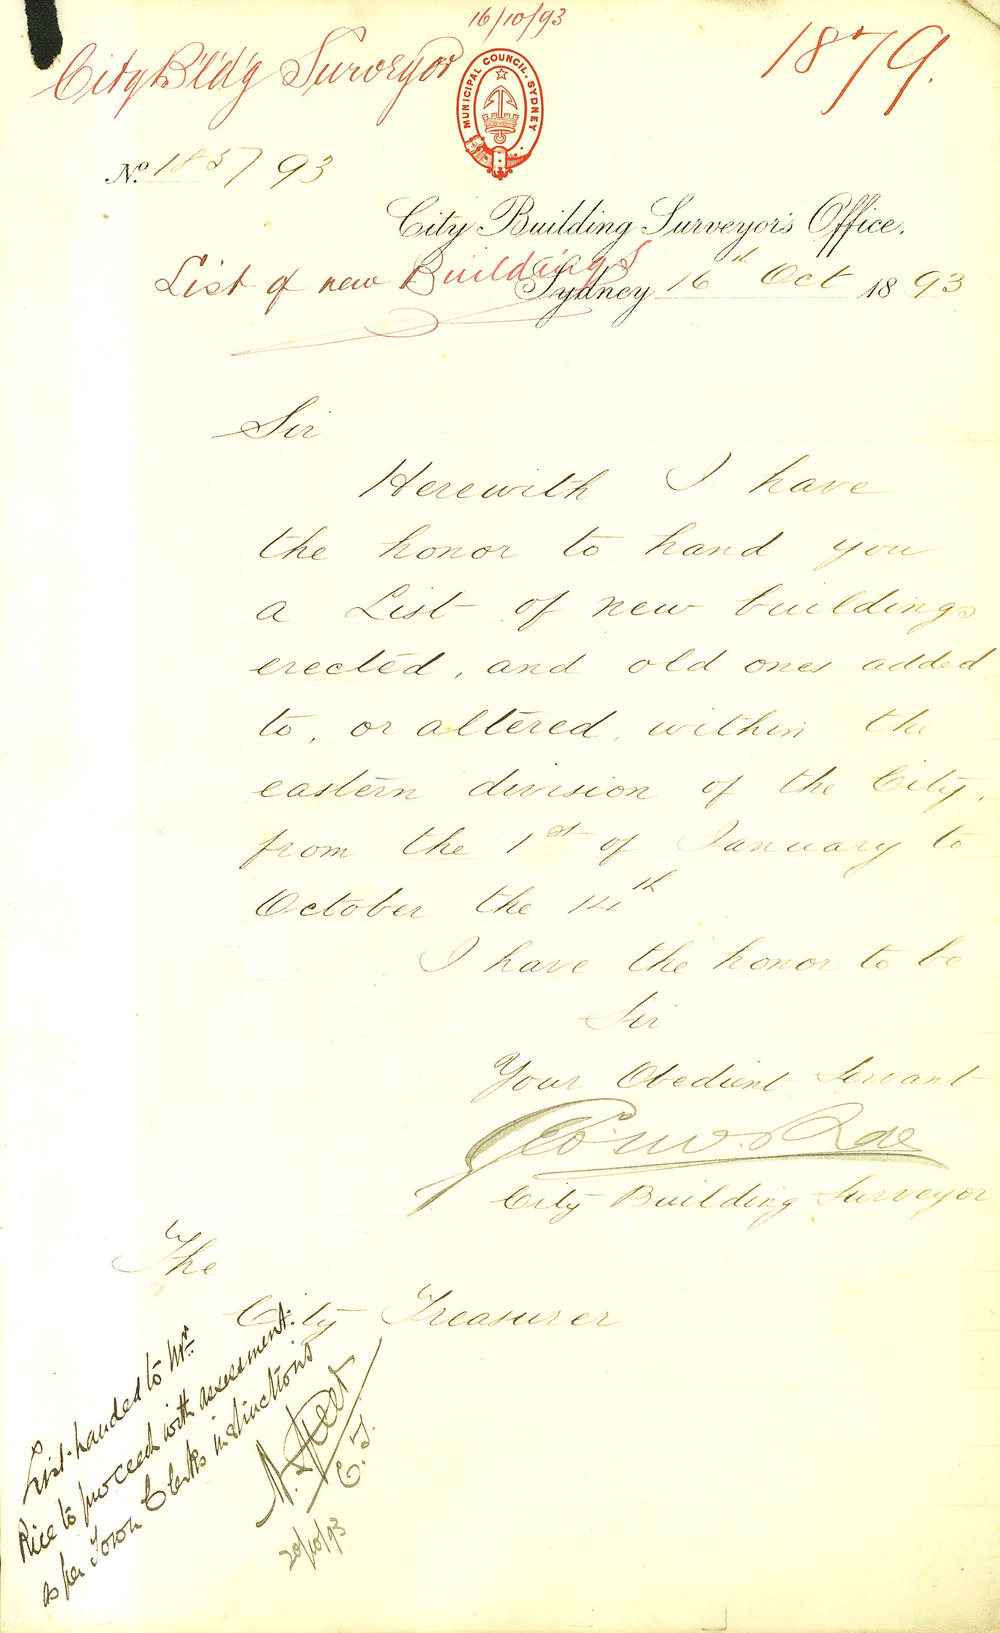 16/10/93
City Bldg Surveyor
1879.
MUNICIPAL COUNCIL. SYDNEY
No. 185/93
City Building Surveyor's Office.
List of new Buildings
Sydney 16th Oct 1893
Sir
Herewith I have
the honor to hand you
a List of new buildings
erected, and old ones added
to, or altered, within the
eastern division of the City,
from the 1st of January to
October the 14th
I have the honor to be
Sir
Your Obedient Servant
Geo. McRae
City Building Surveyor
The
City Treasurer
List handed to Mr
Rice to proceed with assessment.
as per Town Clerks instructions
C.T.
20/10/93